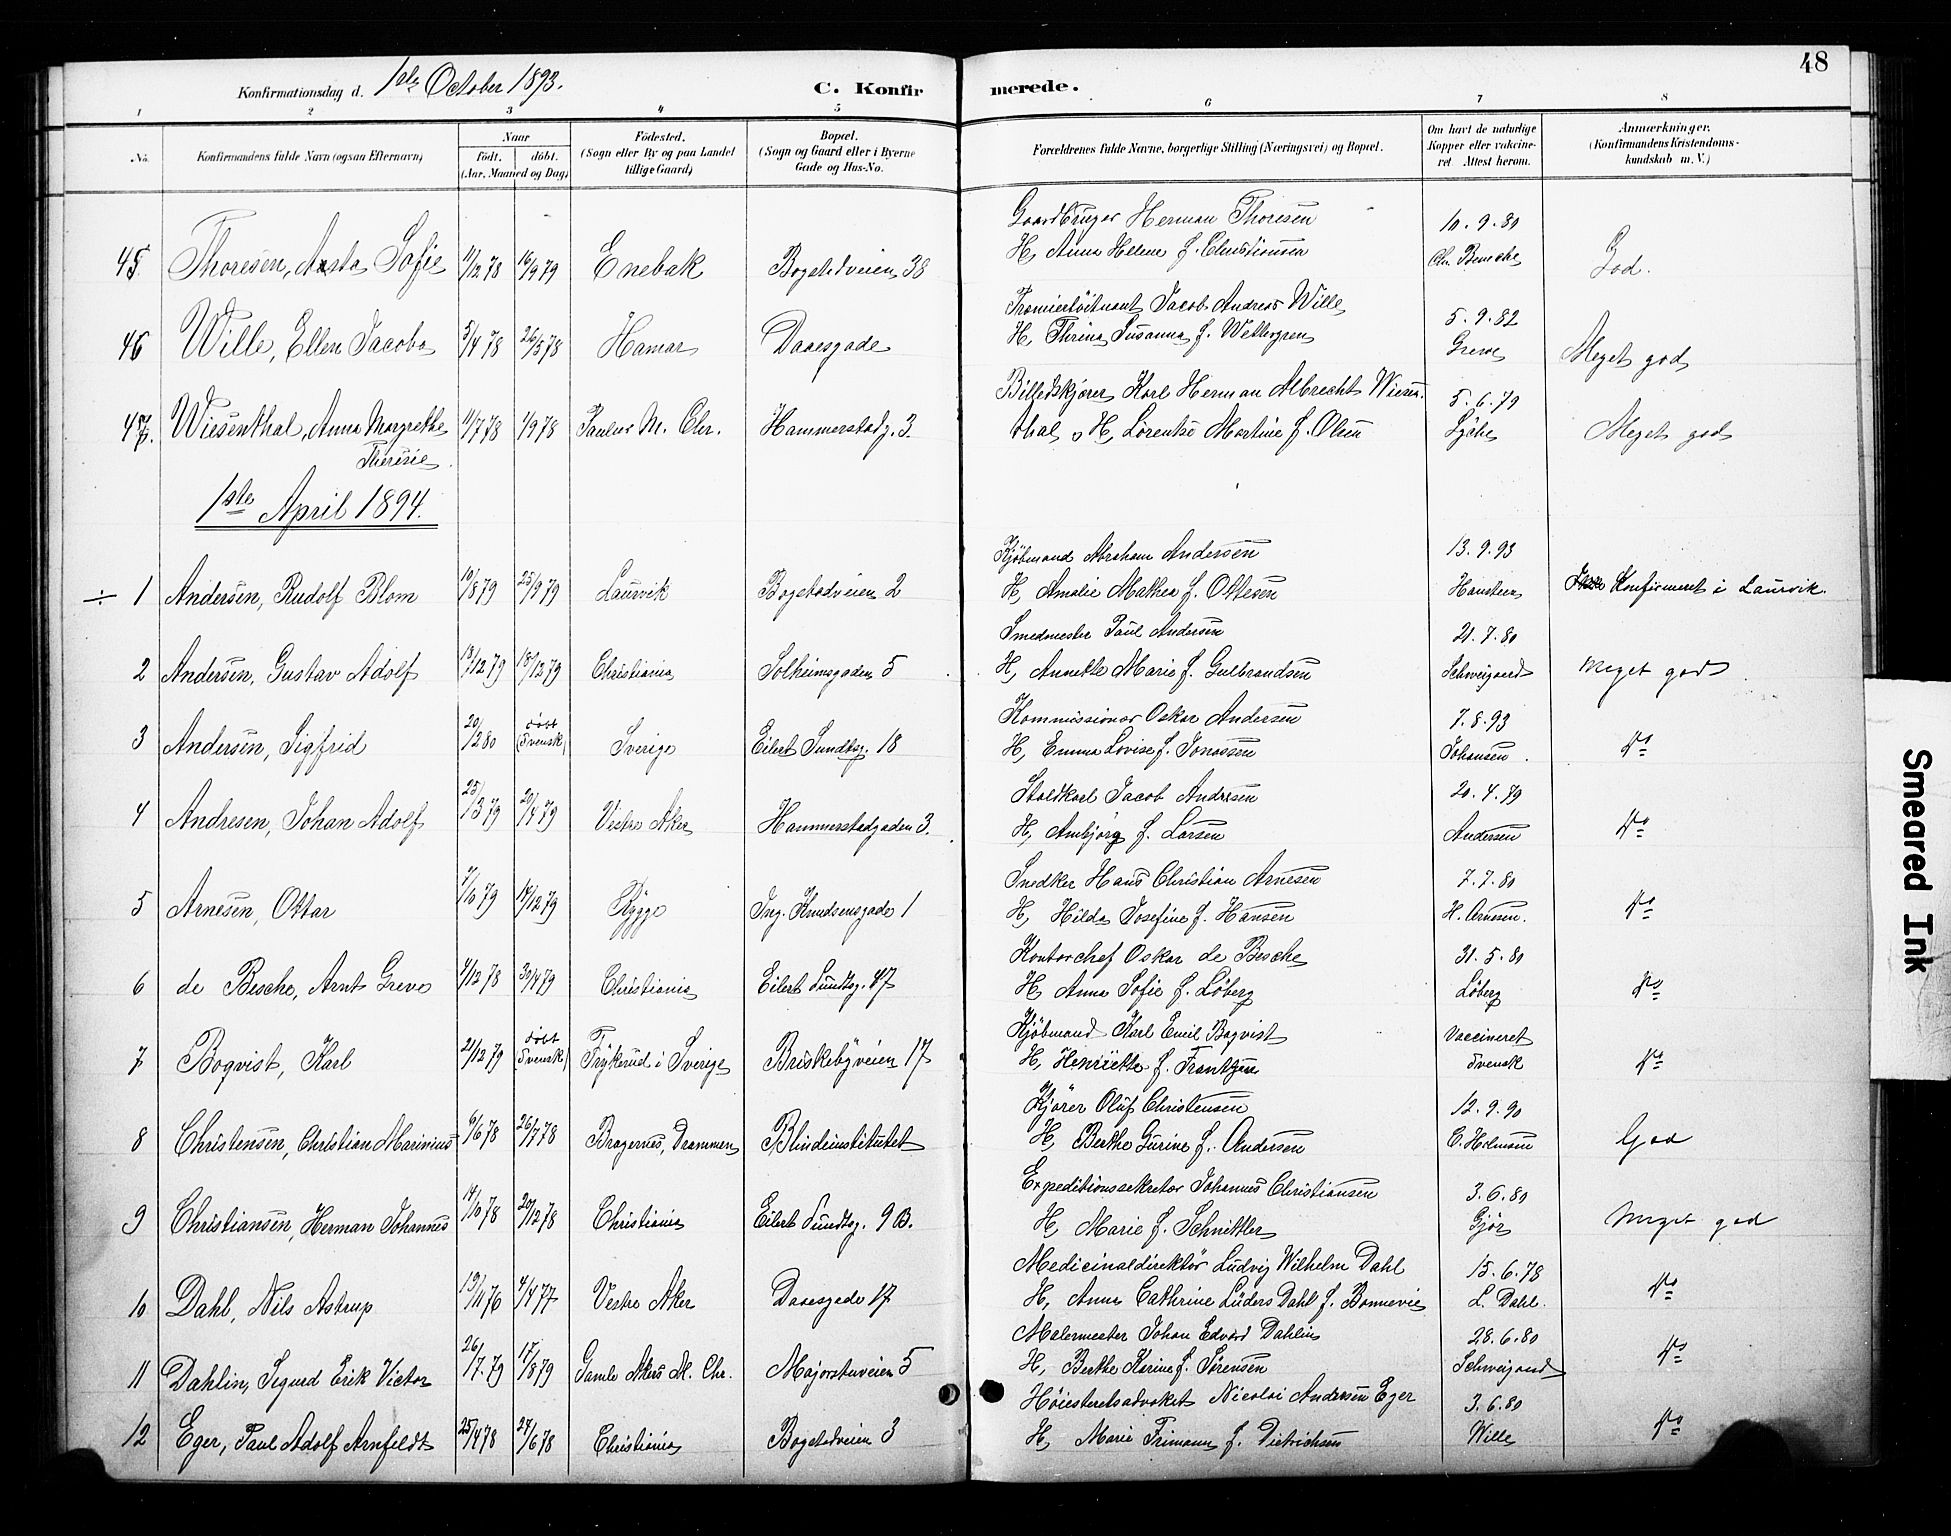 48
Konfirmationsdag d. 1ste October 1893.
C. Konfirmerede.
1 2 3 4 5 6 7 8
No.
Konfirmandens fulde Navn (ogsaa Efternavn)
Naar
født. døbt.
(Aar, Maaned og Dag)
Födested.
(Sogn eller By og paa Landet
tillige Gaard)
Bopæl.
(Sogn og Gaard eller i Byerne
Gade og Hus-No.
Forældrenes fulde Navne, borgerlige Stilling (Næringsvei) og Bopæl.
Om havt de naturlige
Kopper eller vaccine-
ret. Attest herom.
Anmærkninger.
(Konfirmandens Kristendoms-
kundskab m. V.)
Gaardbruger Herman Thoresen 10.9.80
45. Thoresen, Aasta Sofie 11/12 78 16/9 79 Enebak Bogstadveien 38 H, Anna Helene f. Christiansen God.
Premierløitnant Jacob Andreas Wille 5.9.82
46 Wille, Ellen Jacoba 5/4 78 26/5 78 Hamar Daaesgade H, Thrina Susanna f. Wettergren Greve Meget god
Billedskjærer Karl Herman Albrecht Wiesen- 5.6.79
47. Wiesenthal, Anna Margrethe 11/7 78 1/9 78 Paulus M. Chr. Hammerstadg. 3. thal o H, Lorentse Martine f. Olsen Meget god
Theresie.
1ste April 1894.
Kjøbmand Abraham Andersen 13.9.93
÷ 1 Andersen, Rudolf Blom 19/8 79 25/9 79 Laurvik Bogstadveien 2 H, Amalie Mathea f. Ottesen Hansteen Konfirmeret i Laurvik.
Smedmester Paul Andersen 21.7.80
2 Andersen, Gustav Adolf 13/12 79 18/12 79 Christiania Solheimsgaden 5 H, Annette Marie f. Gulbrandsen Schweigaard Meget god
Kommissionær Oskar Andersen 7.8.93
3 Andersen, Sigfrid 20/2 80 døbt (Svensk) Sverige Eilert Sundtsg. 18 H, Emma Lovise f. Jonassen Johansen. Do
Staldkarl Jacob Andresen 20.4.79
4 Andresen, Johan Adolf 25/3 79 20/4 79 Vestre Aker Hammerstadgaden 3. H, Ambjørg f. Larsen Andersen Do
Snedker Hans Christian Arnesen 7.7.80
5 Arnesen, Ottar 7/10 79 14/12 79 Rygge Ing. Knudsensgade 1 H, Hilda Josefine f. Hansen H. Arnesen. Do
Kontorchef Oskar de Besche 31.5.80
6 de Besche, Arnt Greve 4/12 78 30/4 79 Christiania Eilert Sundtsg. 47 H, Anna Sofie f. Löberg Löberg Do
Kjøbmand Karl Emil Boqvist Vaccineret
7 Boqvist, Karl 21/12 79 døbt (Svensk) Frykerud i Sverige Briskebyveien 17 H, Henriette f. Frantzen Svensk Do
Kjører Oluf Christensen 12.9.90
8 Christensen, Christian Marinius 6/6 78 26/7 78 Bragernes, Drammen Blindeinstitutet H, Berthe Gurine f. Andersen God
Expeditionssekretær Johannes Christiansen 3.6.80
9 Christiansen, Herman Johannes 14/10 78 20/12 78 Christiania Eilert Sundtsg. 9 B. H, Marie f. Schnitler Gjør Meget god
Medicinaldirektör Ludvig Wilhelm Dahl 15.6.78
10 Dahl, Nils Astrup 19/11 76 4/4 77 Vestre Aker Daaesgade 17 H, Anna Cathrine Lüders Dahl f. Bonnevie L. Dahl. Do
Malermester Johan Edvard Dahlin 28.6.80
11 Dahlin, Sigurd Erik Victor 26/7 79 17/8 79 Gamle Akers M. Chr. Majorstuveien 5 H, Berthe Karine f. Sørensen Schweigaard Do
Høiesteretsadvokat Nicolai Andresen Eger 3.6.80
12 Eger, Paul Adolf Arnfeldt 25/4 78 24/6 78 Christiania Bogstadveien 3 H, Marie Frimann f. Dietrichsen Wille Do
Smeared Ink